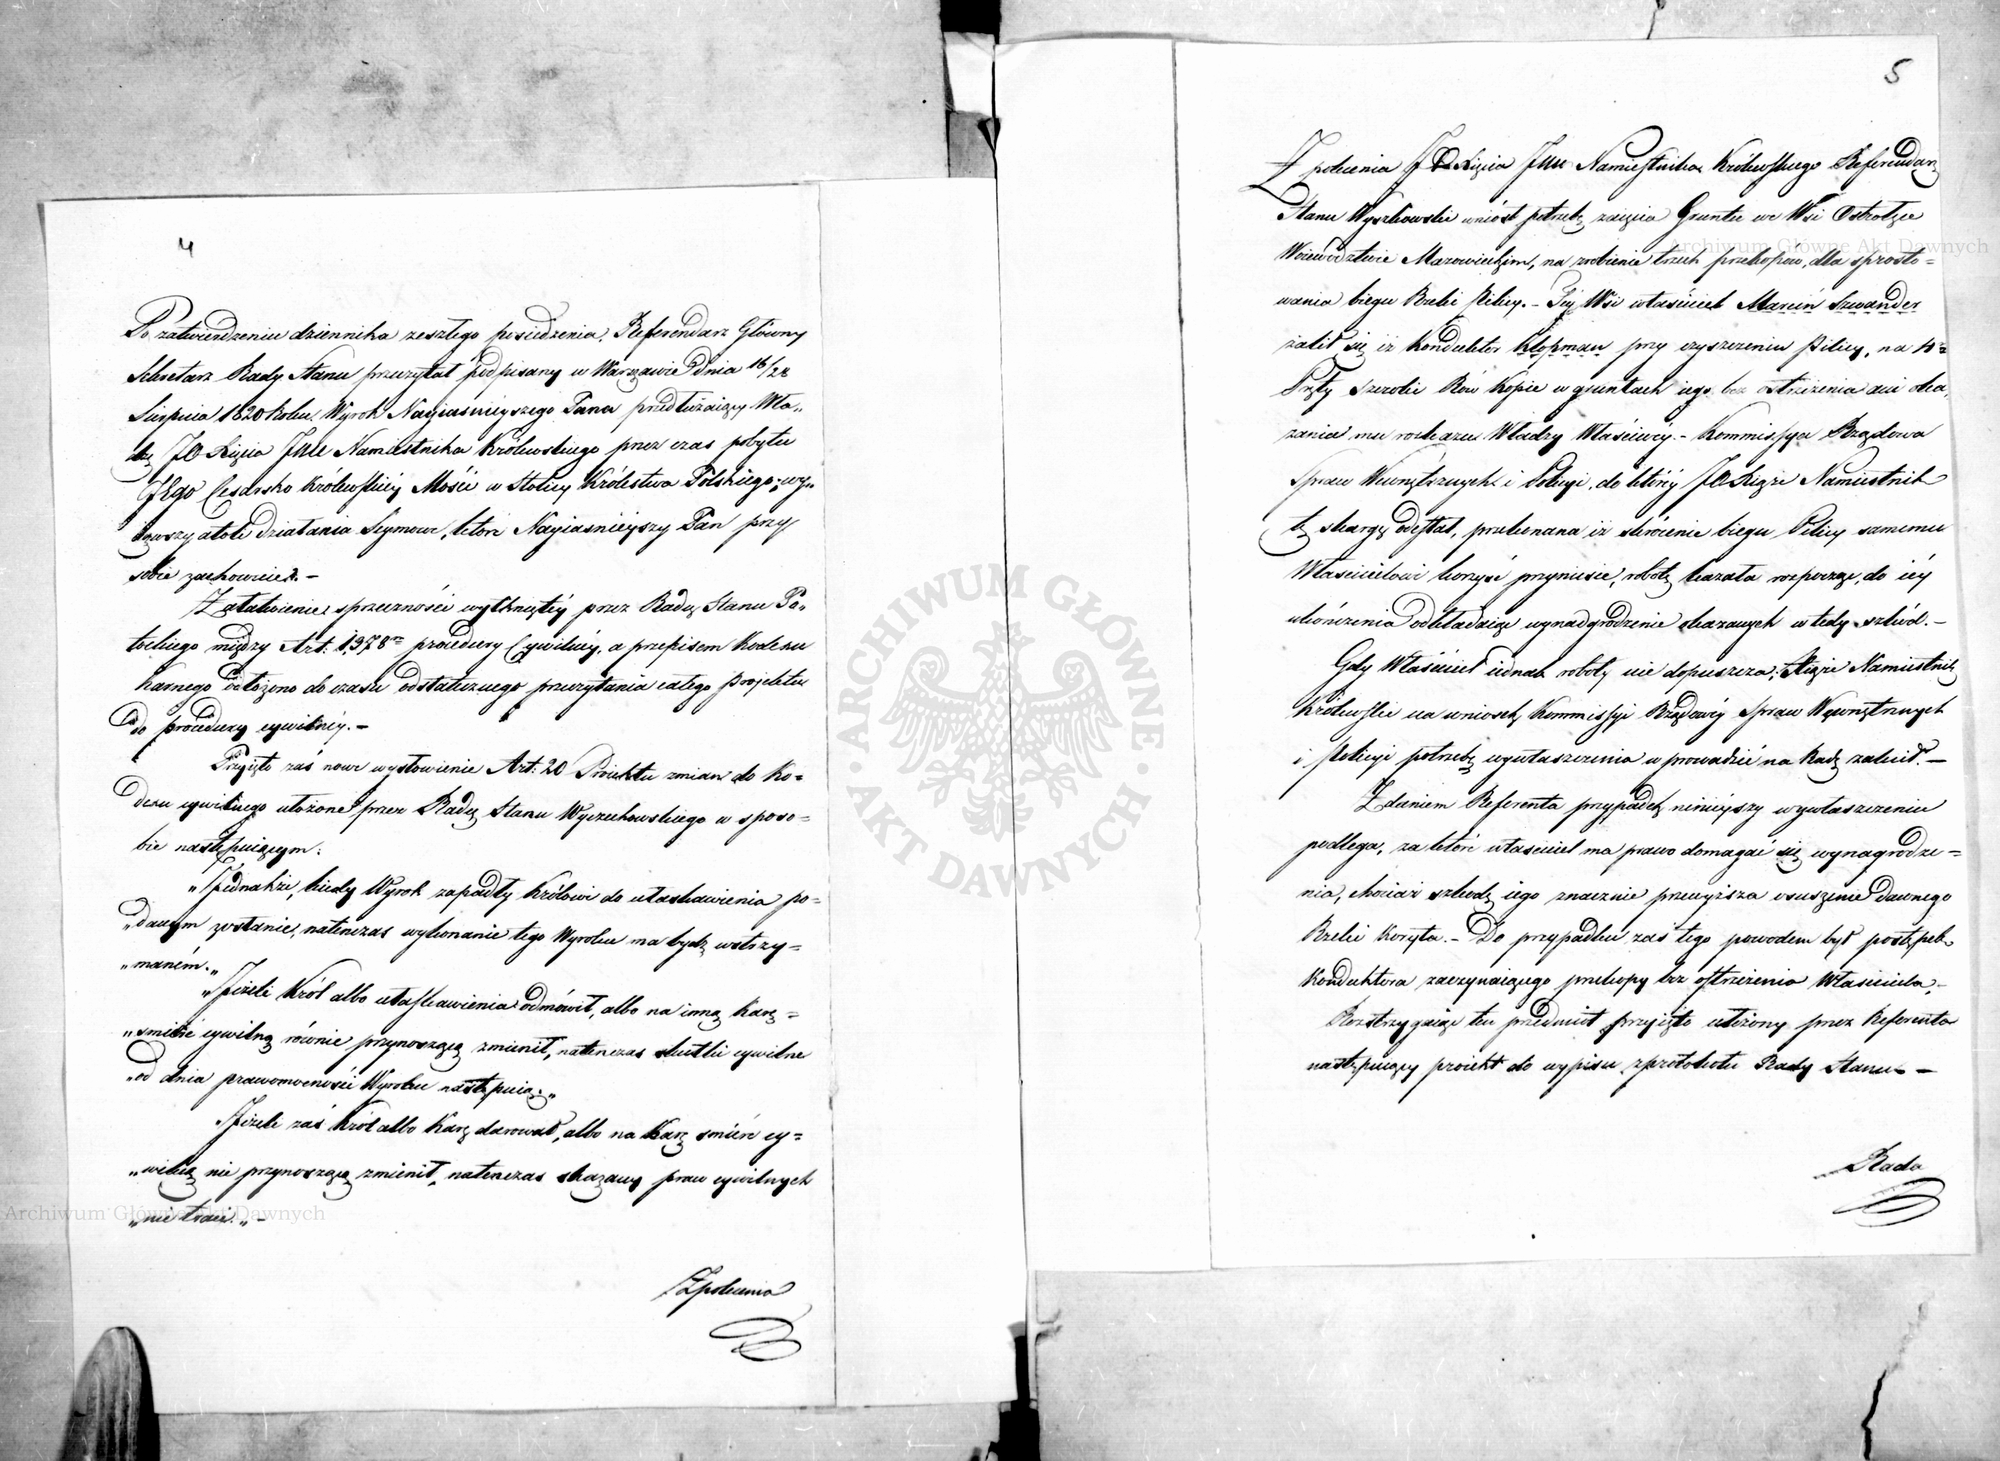 4
Po zatwierdzeniu dziennika zeszłego posiedzenia, Referendarz Główny
Sekretarz Rady Stanu przeczytał podpisany w Warszawie dnia 16/28
Sierpnia 1820 Roku Wyrok Nayiaśnieyszego Pana przedłużaiący Wła-
dzę JO Xięcia Jmci Namiestnika Królewskiego przez czas pobytu
JEgo Cesarsko Królewskiéy Mości w Stolicy Królestwa Polskiego; wy-
iąwszy atoli działania Seymowe, które Nayiaśnieyszy Pan przy
sobie zachowuie. –
Załatwienie sprzeczności wytkniętéy przez Radcę Stanu Po-
tockiego między Art: procedury Cywilnéy, a przepisem Kodexu
karnego odłożono do czasu ostatecznego przeczytania całego Projektu
do procedury cywilnéy. –
Przyięto zaś nowe wysłowienie Art: 20 Proiektu zmian do Ko=
dexu cywilnego ułożone przez Radcę Stanu Wyczechowskiego w sposo=
bie następuiącym:
„Jednakże, kiedy Wyrok zapadły Królowi do ułaskawienia po=
„danym zostanie, natenczas wykonanie tego Wyroku ma bydź wstrzy=
„maném.„
„Jeżeli Król albo ułaskawienia odmówił, albo na inną karę=
„śmierć cywilną równie przynoszącą zmienił, natenczas skutki cywilne
„od dnia prawomocności Wyroku nastąpuią.„
Jeżeli zaś Król albo karę darował, albo na karę śmierć cy=
„wilną nie przynoszącą zmienił, natenczas skazany praw cywilnych
„nie traci.„ –
Z polecenia
5
Z polecenia JO Xięcia Jmci Namiestnika Królewskiego Referendarz
Stanu Wyszkowski wniósł potrzebę zaięcia Gruntu we Wsi Ostrołęce
Woiewództwie Mazowieckim, na zrobienie trzech przekopów, dla sprosto=
wania biegu Rzeki Pilicy. – Téy Wsi właściciel Marcin Szwander
żalił się iż Konduktor Klopman przy czyszczeniu Pilicy, na
Pręty szeroki Rów kopie w gruntach iego bez ostrzeżenia ani oka-
zania mu rozkazu Władzy Właściwéy. – Kommissya Rządowa
Spraw Wewnętrznych i Policyi, do któréy JO Xiąże Namiestnik
tę skargę odesłał, przekonana iż skrócenie biegu Pilicy samemu
Właścicielowi korzyść przyniesie, robotę kazała rozpocząć, do iéy
ukończenia odkładaiąc wynagrodzenie okazanych wtedy szkód. –
Gdy Właściciel iednak roboty nie dopuszcza; Xiąże Namiestnik
Królewski na wniosek Kommissyi Rządowéy Spraw Wewnętrznych
i Policyi potrzebę wywłaszczenia wprowadzić na Radę zalecił. –
Zdaniem Referenta przypadek ninieyszy wywłaszczeniu
podlega, za które właściciel ma prawo domagać się wynagrodze=
nia, chociaż szkodę iego znacznie przewyższa osuszenie dawnego
Rzeki Koryta. – Do przypadku zaś tego powodem był postępek
Konduktora zaczynaiącego przekopy bez ostrzeżenia Właściciela. –
Rozstrzygaiąc ten przedmiot przyięto ułożony przez Referenta
następuiący proiekt do wypisu z protokołu Rady Stanu. –
Rada
ARCHIWUM GŁÓWNE
AKT DAWNYCH
Archiwum Główne Akt Dawnych
Archiwum Główne Akt Dawnych